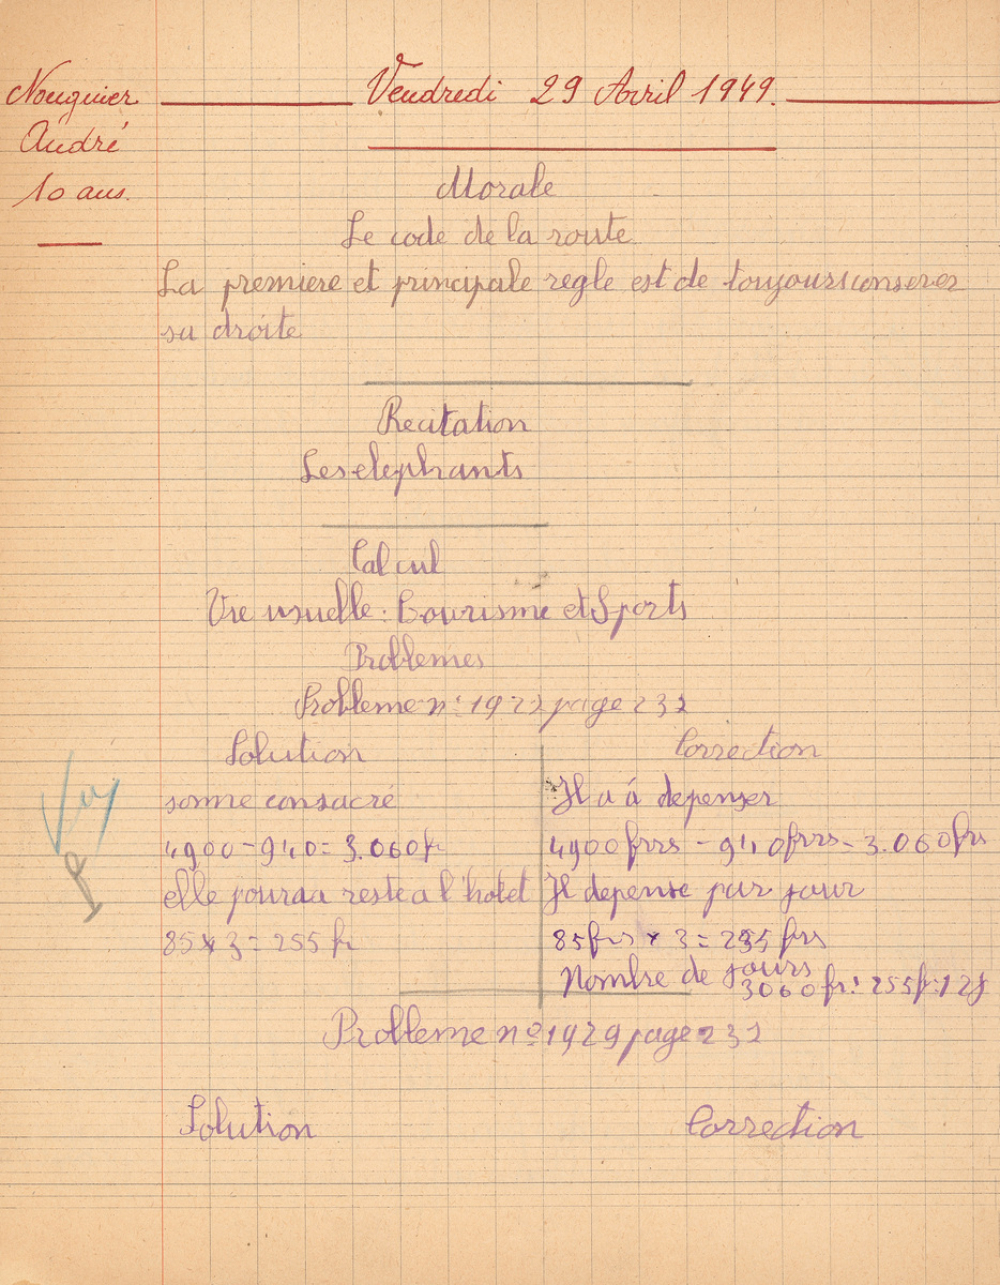 Nouguier
André
10 ans.
Vendredi 29 Avril 1949.
Morale
Le code de la route
La premiere et principale regle est de toujours conserer
sa droite
Recitation
Les elephants
Calcul
Vie usuelle : Tourisme et Sports
Problemes
Probleme n° 1922 page 232
Solution
somme consacré
4900 - 940 = 3.060 fr
elle pouraa reste a l'hotel
85 x 3 = 255 fr
Correction
Il a à depenser
4900 frrs - 940 frrs = 3.060 frs
Il depense par jour
85 frs x 3 = 255 frs
Nombre de jours
3060 fr : 255 fr = 12 j
Probleme n° 1929 page 232
Solution
Correction